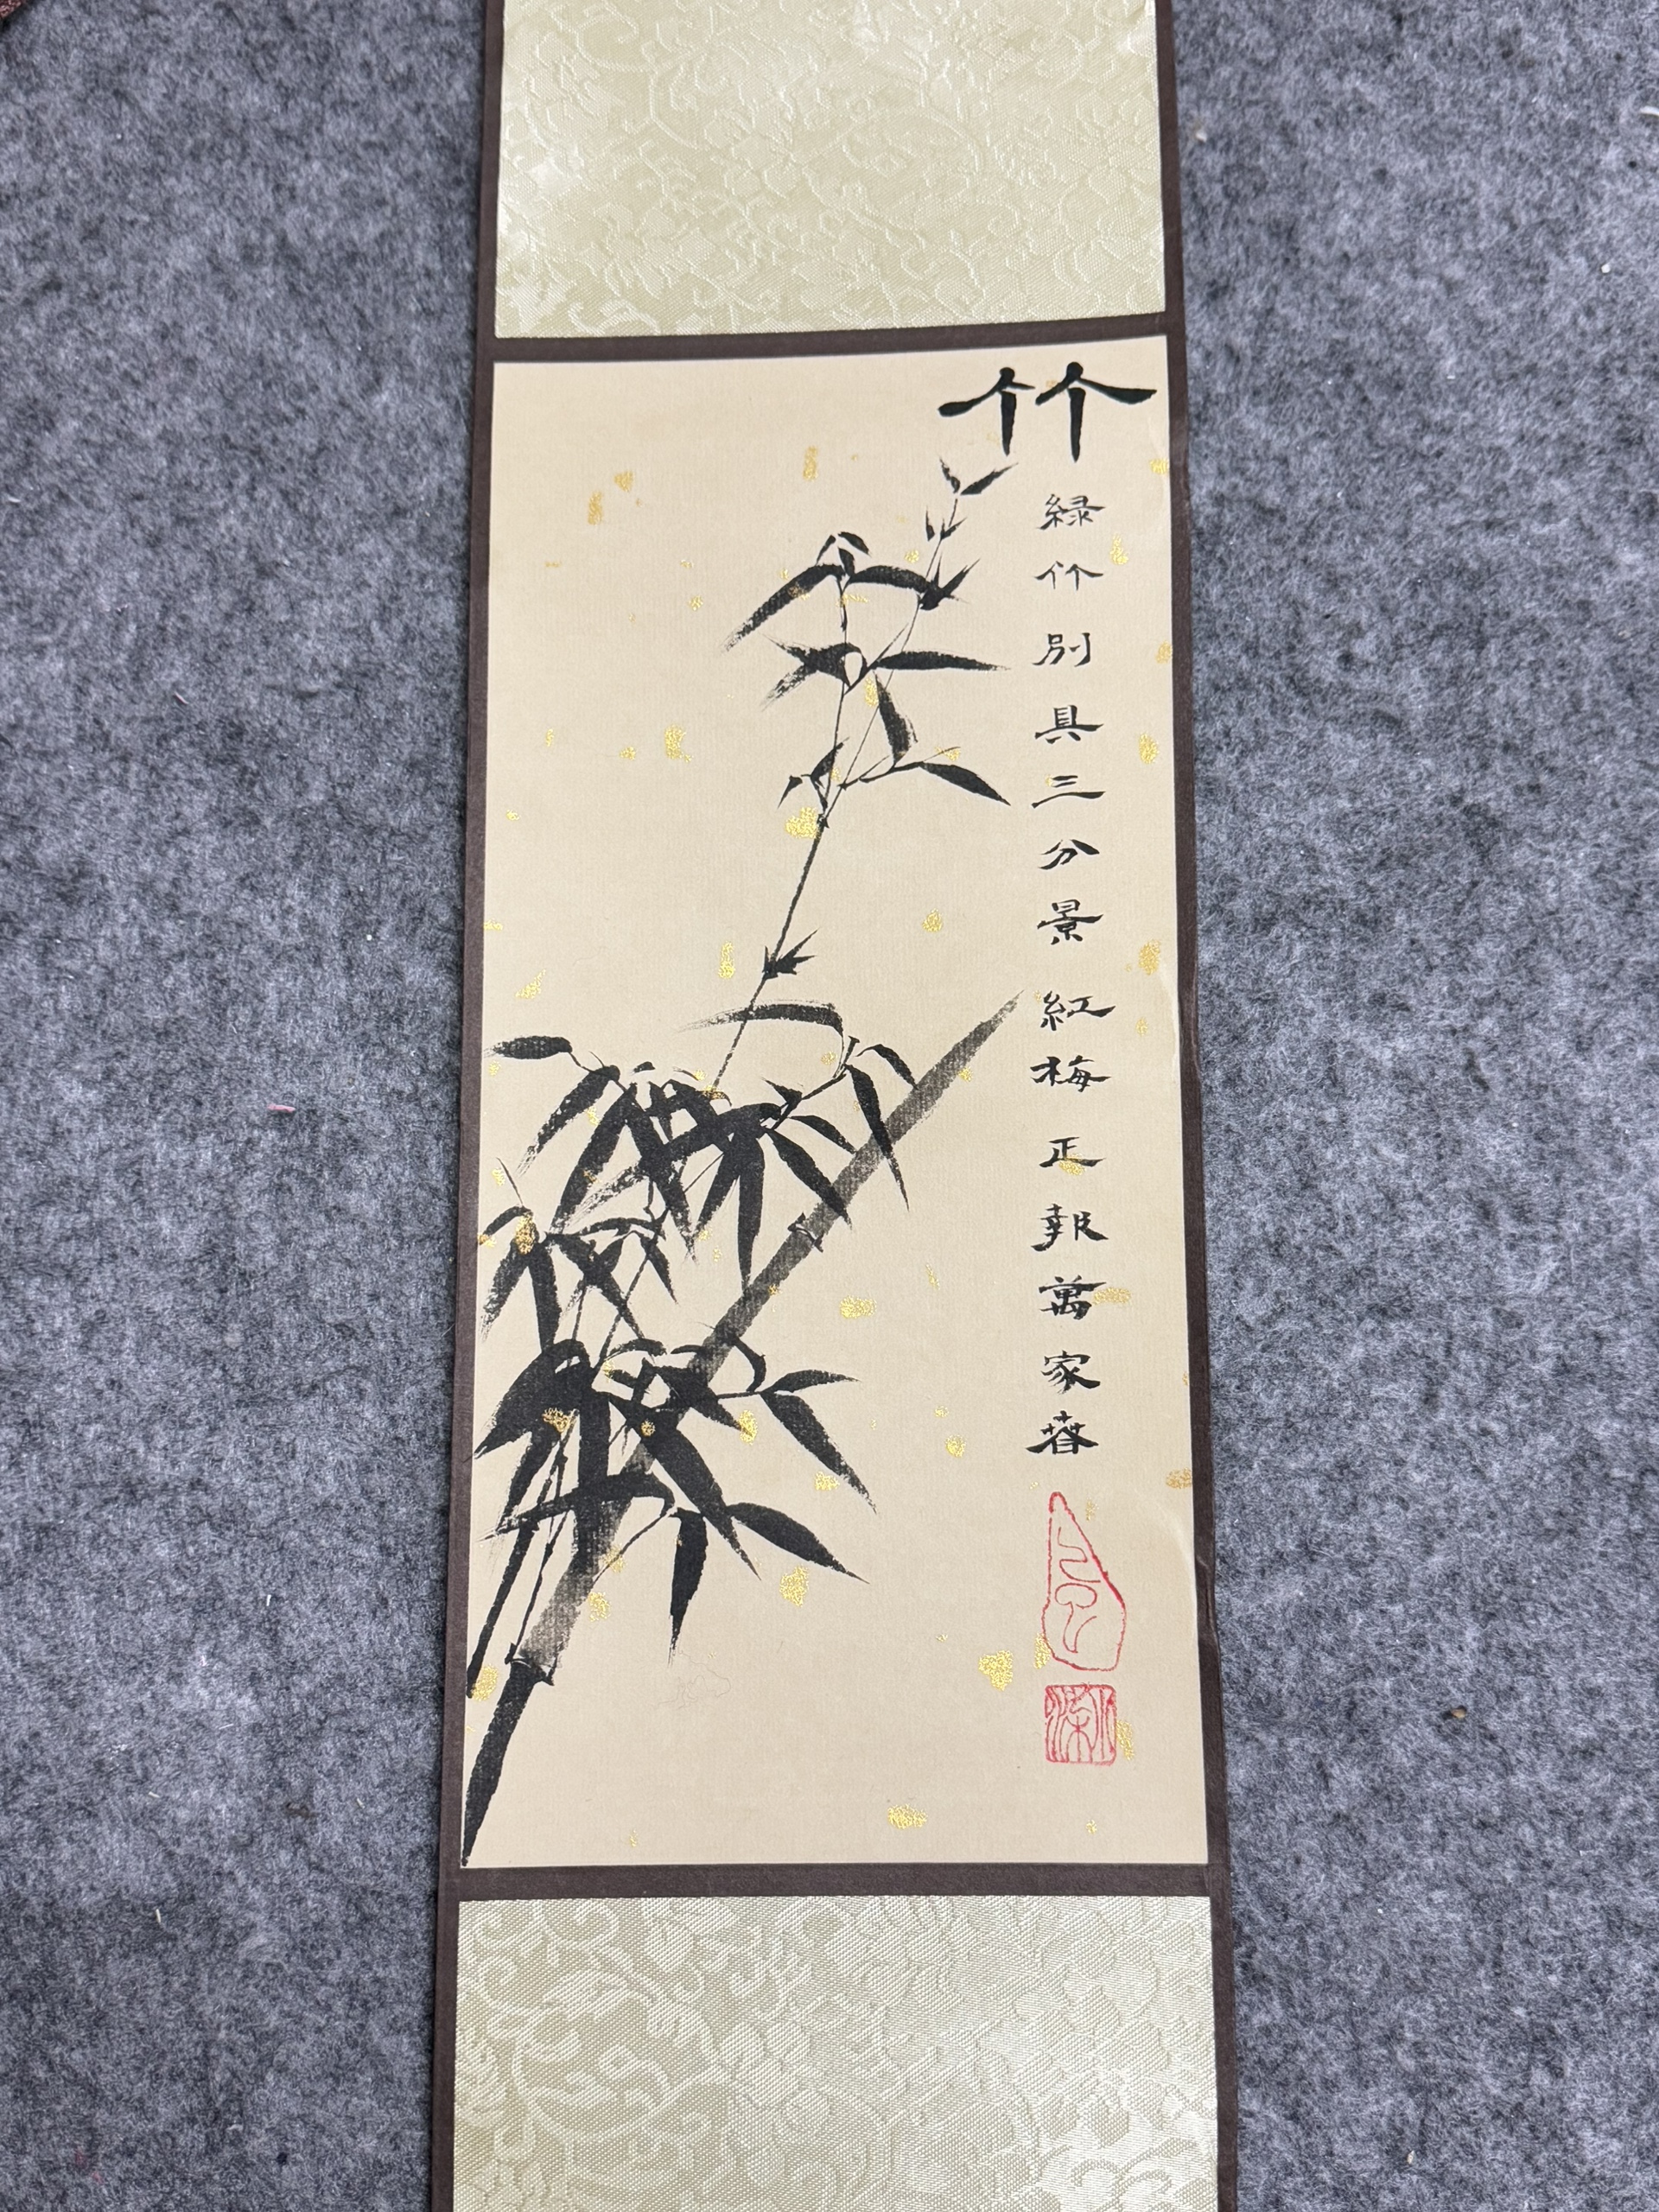 竹
緑竹別具三分景紅梅正報萬家萅